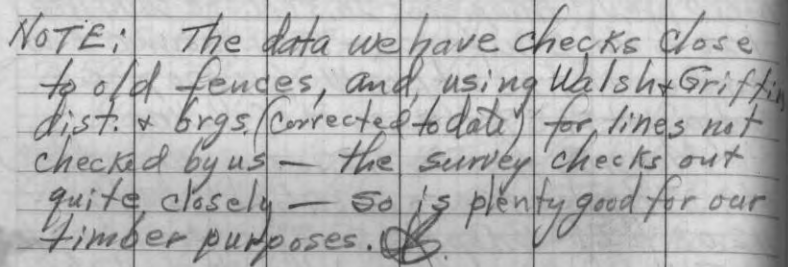 NOTE: The data we have checks close
to old fences, and, using Walsh & Griffin
dist. & brgs. (corrected to date) for lines not
checked by us — the survey checks out
quite closely — so is plenty good for our
timber purposes.